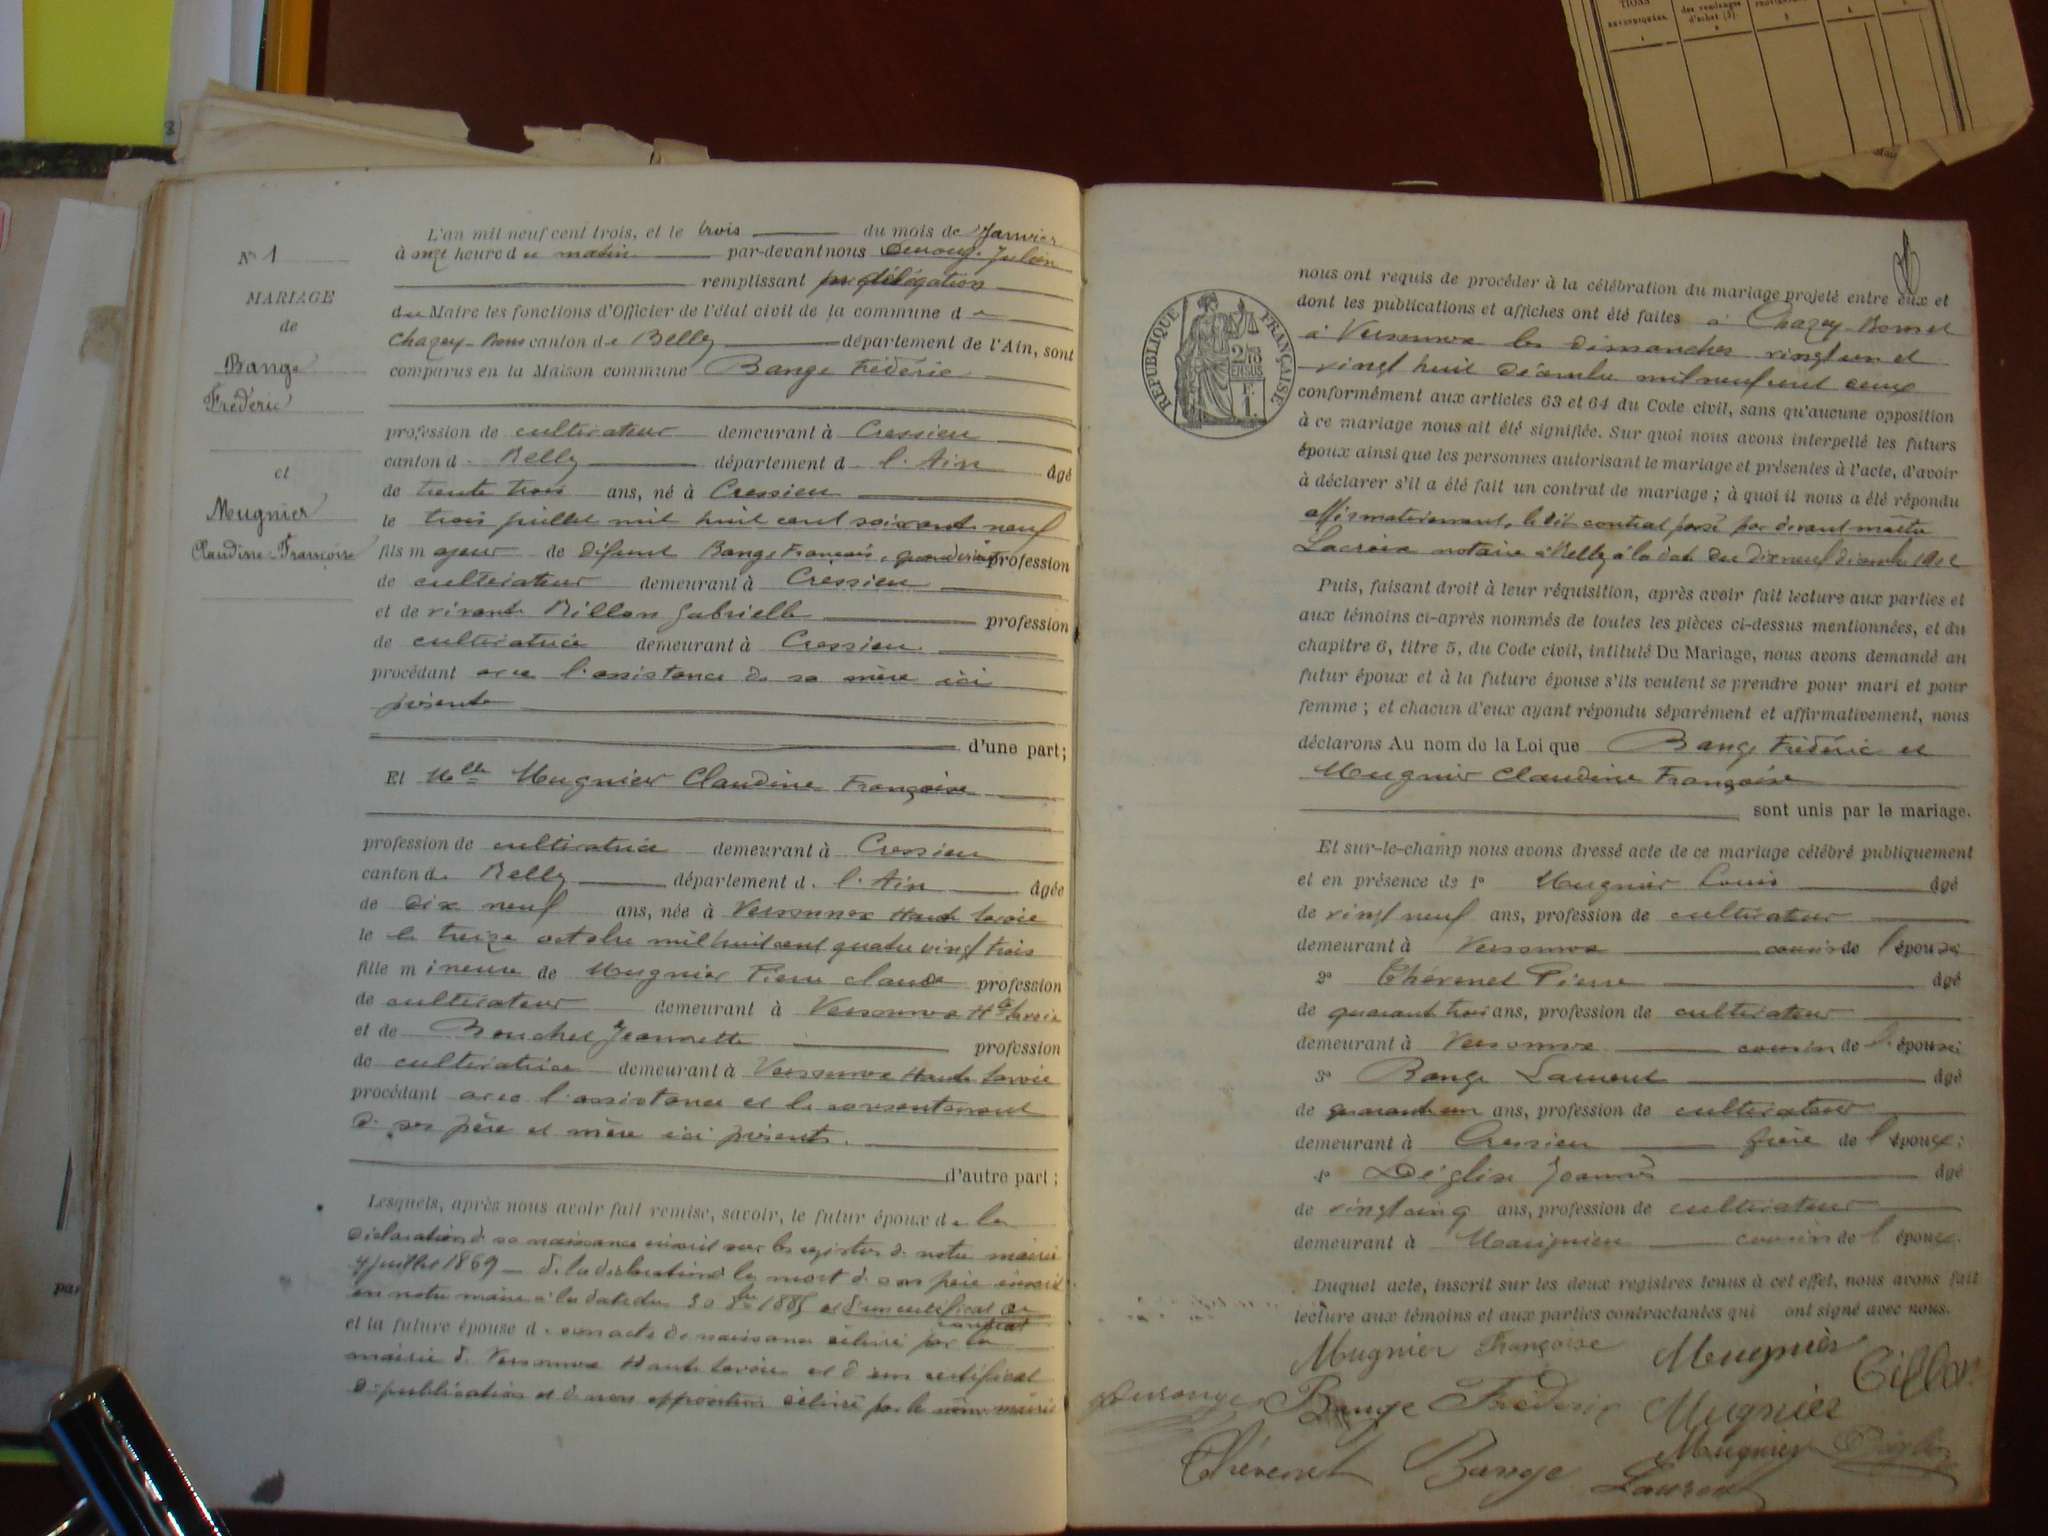 N° 1
MARIAGE
de
Bange
Frédéric
et
Mugnier
Claudine Françoise
L'an mil neuf cent trois, et le trois du mois de Janvier
à onze heure du matin par-devant nous Julien
remplissant par délégation
du Maire les fonctions d'Officier de l'état civil de la commune de
Chazey-Bons canton de Belley département de l'Ain, sont
comparus en la Maison commune Bange Frédéric
profession de cultivateur demeurant à Cressieu
canton d. Belley département d. l'Ain âgé
de trente trois ans, né à Cressieu
le trois juillet mil huit cent soixante neuf
fils majeur de défunt Bange François, profession
de cultivateur demeurant à Cressieu
et de vivante Billon Gabrielle profession
de cultivatrice demeurant à Cressieu
procédant avec l'assistance de sa mère ici
présente
d'une part;
Et Melle Mugnier Claudine Françoise
profession de cultivatrice demeurant à Cressieu
canton de Belley département d. l'Ain âgée
de dix neuf ans, née à Versonnex Haute Savoie
le le treize octobre mil huit cent quatre vingt trois
fille mineure de Mugnier Pierre Claude profession
de cultivateur demeurant à Versonnex Hte Savoie
et de Bouchet Jeannette profession
de cultivatrice demeurant à Versonnex Haute Savoie
procédant avec l'assistance et le consentement
de ses père et mère ici présents.
d'autre part;
Lesquels, après nous avoir fait remise, savoir, le futur époux de la
déclaration de sa naissance inscrit sur les registres de notre mairie
4 juillet 1869 de la déclaration de la mort de son père inscrit
en notre mairie à la date du 30 1885 et d'un certificat de
contrat
et la future épouse d. son acte de naissance délivré par la
mairie de Versonnex Haute Savoie et d'un certificat
de publication et de non opposition délivré par la même mairie
RÉPUBLIQUE FRANÇAISE
2/10 EN SUS
F. 1.
nous ont requis de procéder à la célébration du mariage projeté entre eux et
dont les publications et affiches ont été faites à Chazey-Bons et
à Versonnex les dimanches vingt un et
vingt huit décembre mil neuf cent deux
conformément aux articles 63 et 64 du Code civil, sans qu'aucune opposition
à ce mariage nous ait été signifiée. Sur quoi nous avons interpellé les futurs
époux ainsi que les personnes autorisant le mariage et présentes à l'acte, d'avoir
à déclarer s'il a été fait un contrat de mariage; à quoi il nous a été répondu
affirmativement, le dit contrat passé par devant maître
Lacroix notaire à Belley à la date du dix neuf décembre 1902
Puis, faisant droit à leur réquisition, après avoir fait lecture aux parties et
aux témoins ci-après nommés de toutes les pièces ci-dessus mentionnées, et du
chapitre 6, titre 5, du Code civil, intitulé Du Mariage, nous avons demandé au
futur époux et à la future épouse s'ils veulent se prendre pour mari et pour
femme; et chacun d'eux ayant répondu séparément et affirmativement, nous
déclarons Au nom de la Loi que Bange Frédéric et
Mugnier Claudine Françoise
sont unis par le mariage.
Et sur-le-champ nous avons dressé acte de ce mariage célébré publiquement
et en présence de 1° Mugnier Louis âgé
de vingt neuf ans, profession de cultivateur
demeurant à Versonnex cousin de l'épouse
2° Thévenet Pierre âgé
de quarante trois ans, profession de cultivateur
demeurant à Versonnex cousin de l'épouse;
3° Bange Laurent âgé
de quarante un ans, profession de cultivateur
demeurant à Cressieu frère de l'époux;
4° Déglise Joannès âgé
de vingt cinq ans, profession de cultivateur
demeurant à cousin de l'époux.
Duquel acte, inscrit sur les deux registres tenus à cet effet, nous avons fait
lecture aux témoins et aux parties contractantes qui ont signé avec nous.
Mugnier Françoise Mugnier
Bange Frédéric Mugnier
Thévenet Bange Mugnier
Laurent